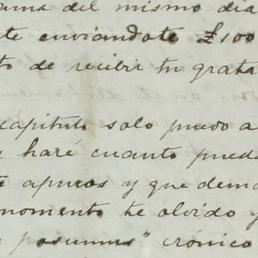 una del mismo dia
te enviandote £100
to de recibir tu grata
capitulo solo puedo a
haré cuanto pueda
apuros y que dem
momento te olvido y
"posumus" crónico